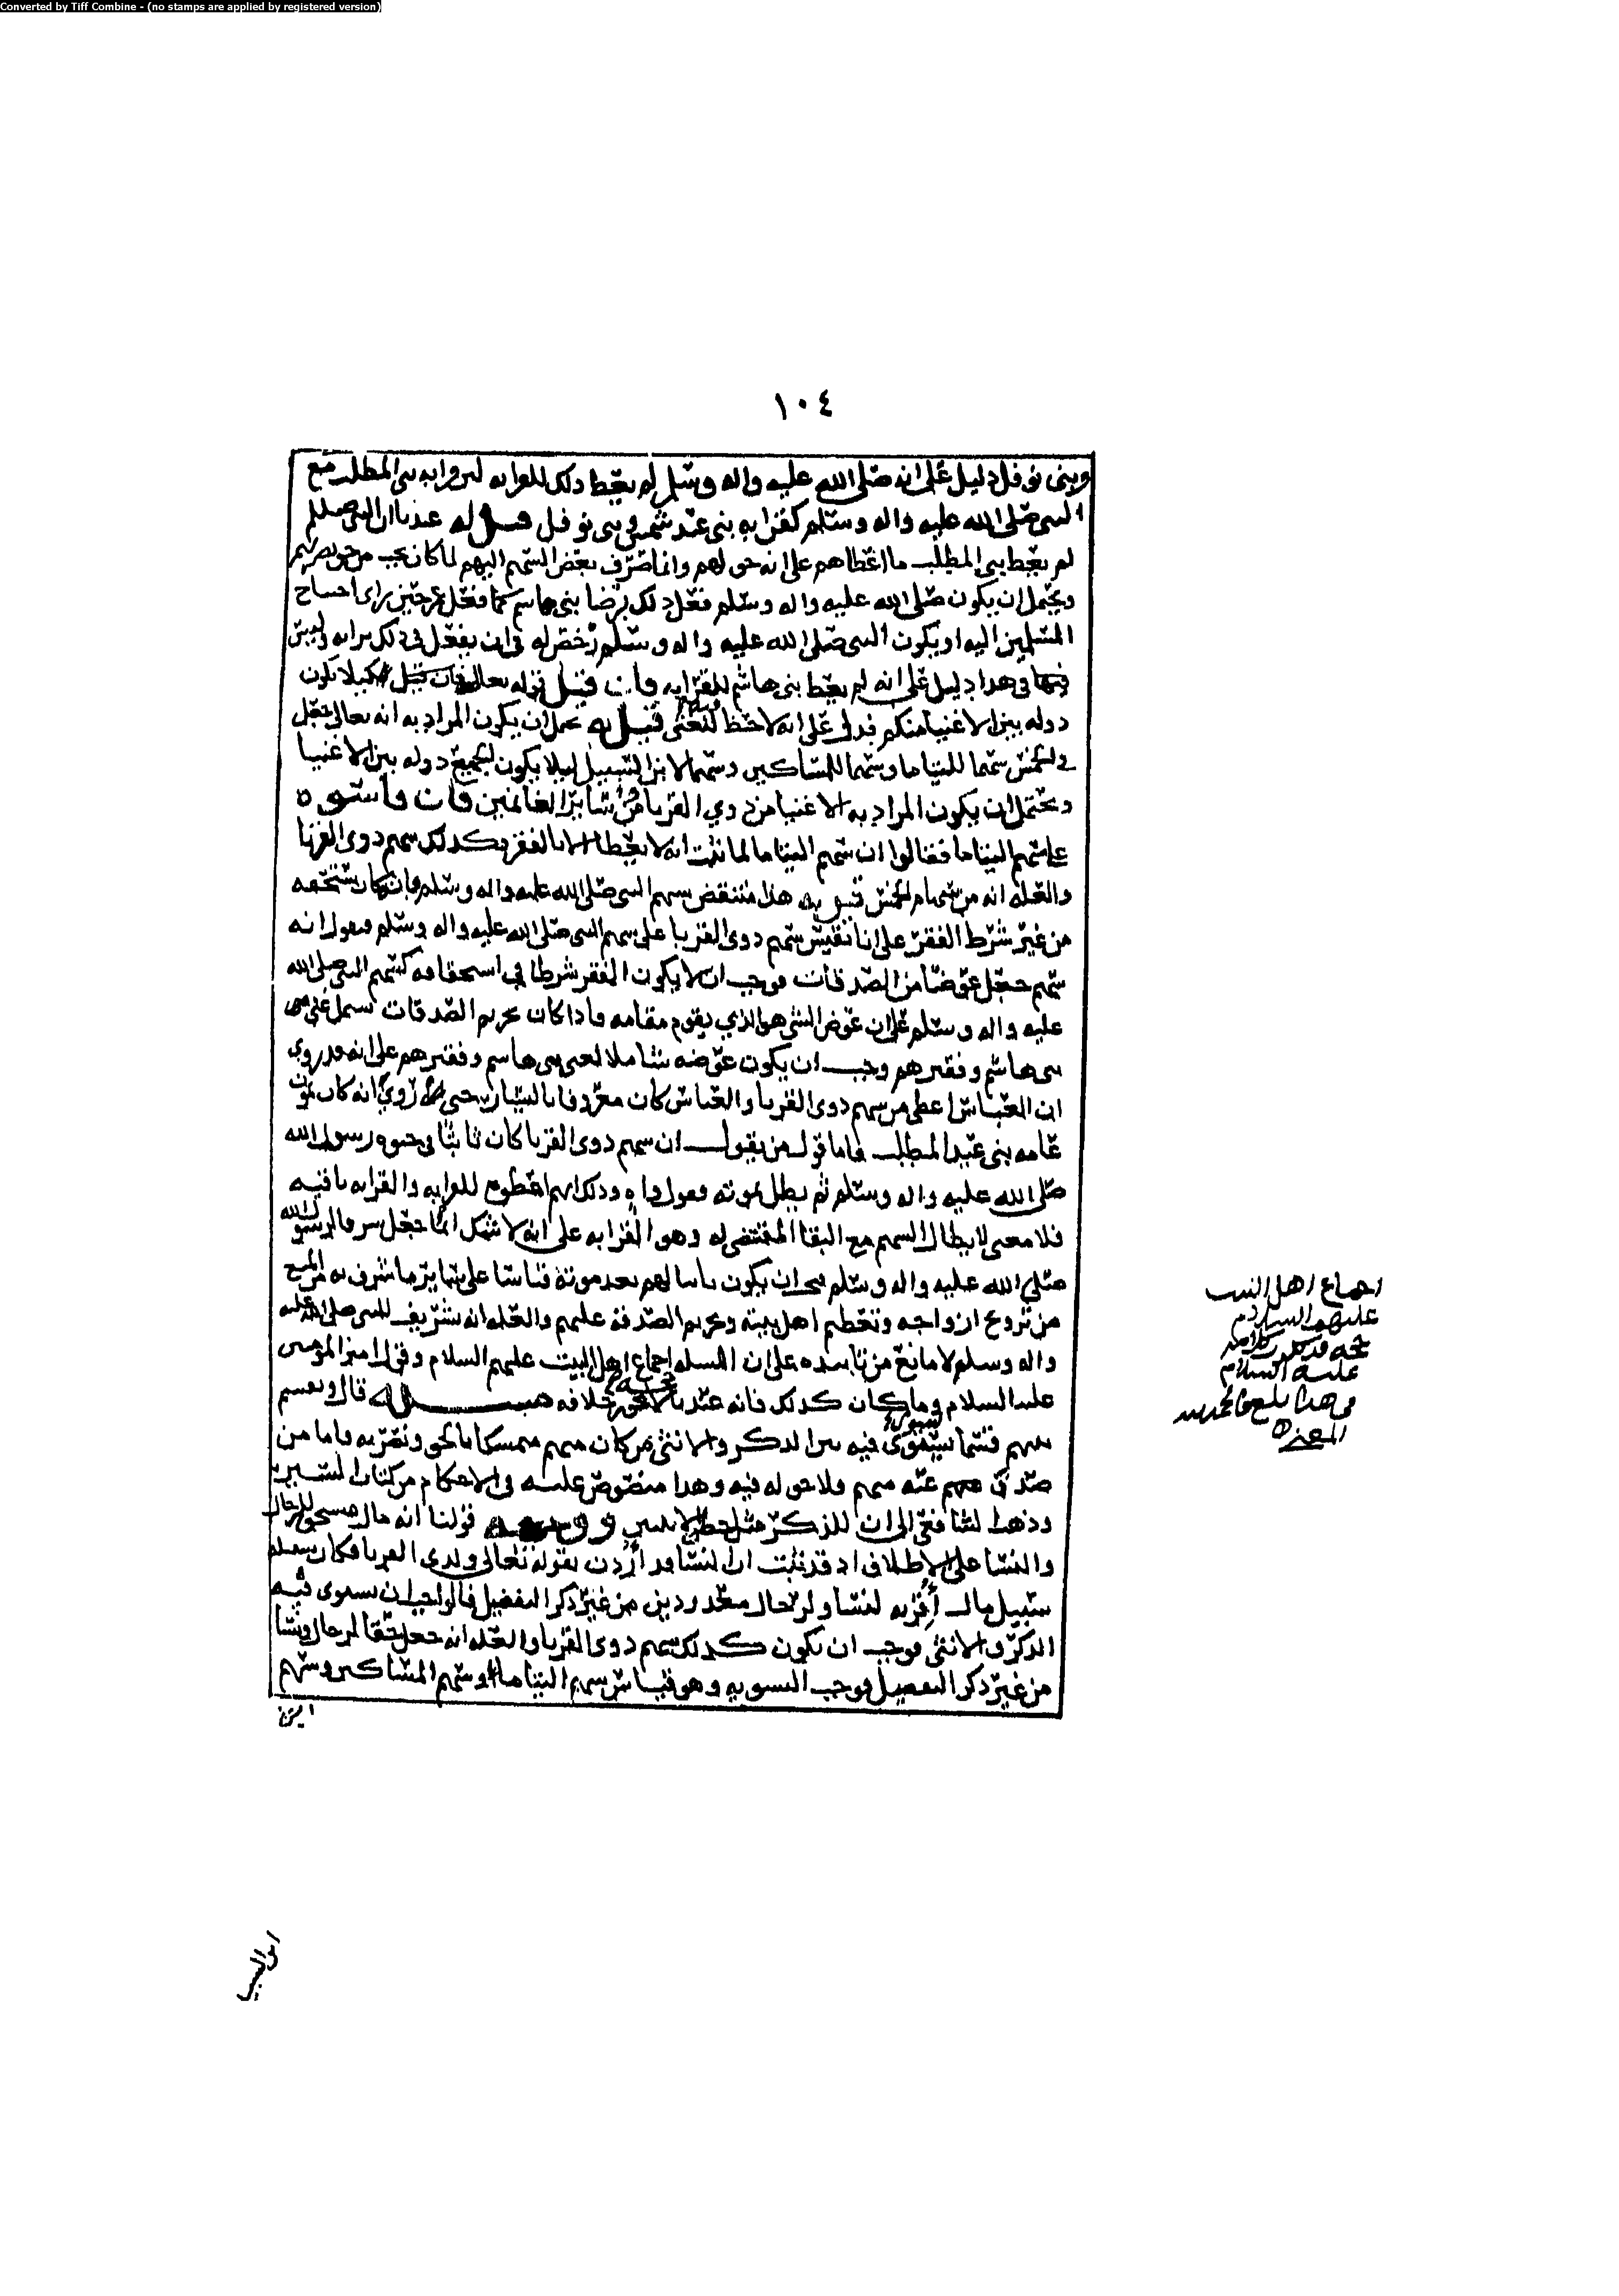 Converted by Tiff Combine - (no stamps are applied by registered version)
١٠٤
وبنى نوفل دليل على انه صلى الله عليه واله وسلم لم يعط ذلك للقرابه لان قرابه بنى المطلب مع
النبى صلى الله عليه واله وسلم كقرابه بنى عبد شمس وبنى نوفل قيل له عندنا ان النبي صلعلم
لم يعط بنى المطلب ما اعطاهم على انه حق لهم وانما صرف بعض السهم اليهم لما كان يجب من حق نصرتهم
ويحتمل ان يكون صلى الله عليه واله وسلم فعل ذلك برضا بنى هاشم كما فعل عمر حين راى احتياج
المسلمين اليه او يكون النبى صلى الله عليه واله وسلم رخص له فى ان يفعل فى ذلك برايه وليس
فى هذا دليل على انه لم يعط بنى هاشم للقرابه فان قيل قوله تعالى كيلا يكون
دوله بين الاغنيا منكم فدل على انه لا حظ لغنى قيل له يحتمل ان يكون المراد به انه تعالى جعل
فى الخمس سهما لليتاما وسهما للمساكين وسهما لابن السبيل ليلا يكون الجميع دوله بين الاغنيا
ويحتمل ان يكون المراد به الاغنيا من ذوي القربا من ساير الغانمين فان قاسوه
على سهم اليتاما فقالوا ان سهم اليتاما لما ثبت انه لا يعطا الا بالفقر فكذلك سهم ذوى القربا
والعله انه من سهام الخمس قيل له هذا منتقض بسهم النبى صلى الله عليه واله وسلم فانه كان يستحقه
من غير شرط الفقر على انا نقيس سهم ذوى القربا على سهم النبى صلى الله عليه واله وسلم فنقول انه
سهم جعل عوضا من الصدقات فوجب ان لا يكون الفقر شرطا فى استحقاقه كسهم النبي صلى الله
عليه واله وسلم على ان عوض الشى هو الذي يقوم مقامه فاذا كان تحريم الصدقات يشمل غنى
بنى هاشم وفقيرهم وجب ان يكون عوضه شاملا لغنى بنى هاشم وفقيرهم على انه قد روى
ان العباس اعطى من سهم ذوى القربا والعباس كان معروفا باليسار حتى روي انه كان يمون
عامه بنى عبد المطلب فاما قول من يقول ان سهم ذوى القربا كان ثابتا فى حيوه رسول الله
صلى الله عليه واله وسلم ثم بطل بموته فقول واه وذلك انهم اعطوه للقرابه والقرابه باقيه
فلا معنى لابطال السهم مع البقا المقتضى له وهو القرابه على انه لا شكل انما جعل شرفا لرسول الله
صلى الله عليه واله وسلم فيجب ان يكون ثابتا لهم بعد موته قياسا على ساير ما شرف به من المنع
من تزويج ازواجه وتعظيم اهل بيته وتحريم الصدقه عليهم والعله انه تشريف للنبى صلى الله عليه
واله وسلم لا مانع من تابيده على ان المسله اجماع اهل البيت عليهم السلام وقول امير المومنين
عليه السلام وما كان كذلك فانه عندنا لا يجوز خلافه مسئله قال ويقسم
بينهم قسما يستوى فيه بين الذكر والانثى من كان منهم متمسكا بالحق ونصرته فاما من
صدف منهم عنه فلا حق له فيه وهذا منصوص عليه فى الاحكام من كتاب السير
وذهب الشافعى الى ان للذكر مثل حظ الانثيين قولنا انه مال مستحق للرجال
والنسا على الاطلاق اذ قد ثبت ان النسا قد اردن بقوله تعالى ولذى القربا فكان سبيله
سبيل مال اقر به لنسا ولرجال معدودين من غير ذكر التفضيل فالواجب ان يستوى فيه
الذكر والانثى فوجب ان يكون كذلك سهم ذوى القربا والعله انه جعل حقا لرجال ونسا
من غير ذكر التفضيل فوجب التسويه وهو قياس سهم اليتاما وسهم المساكين وسهم
ابن
اجماع اهل البيت
عليهم السلام
عليه السلام